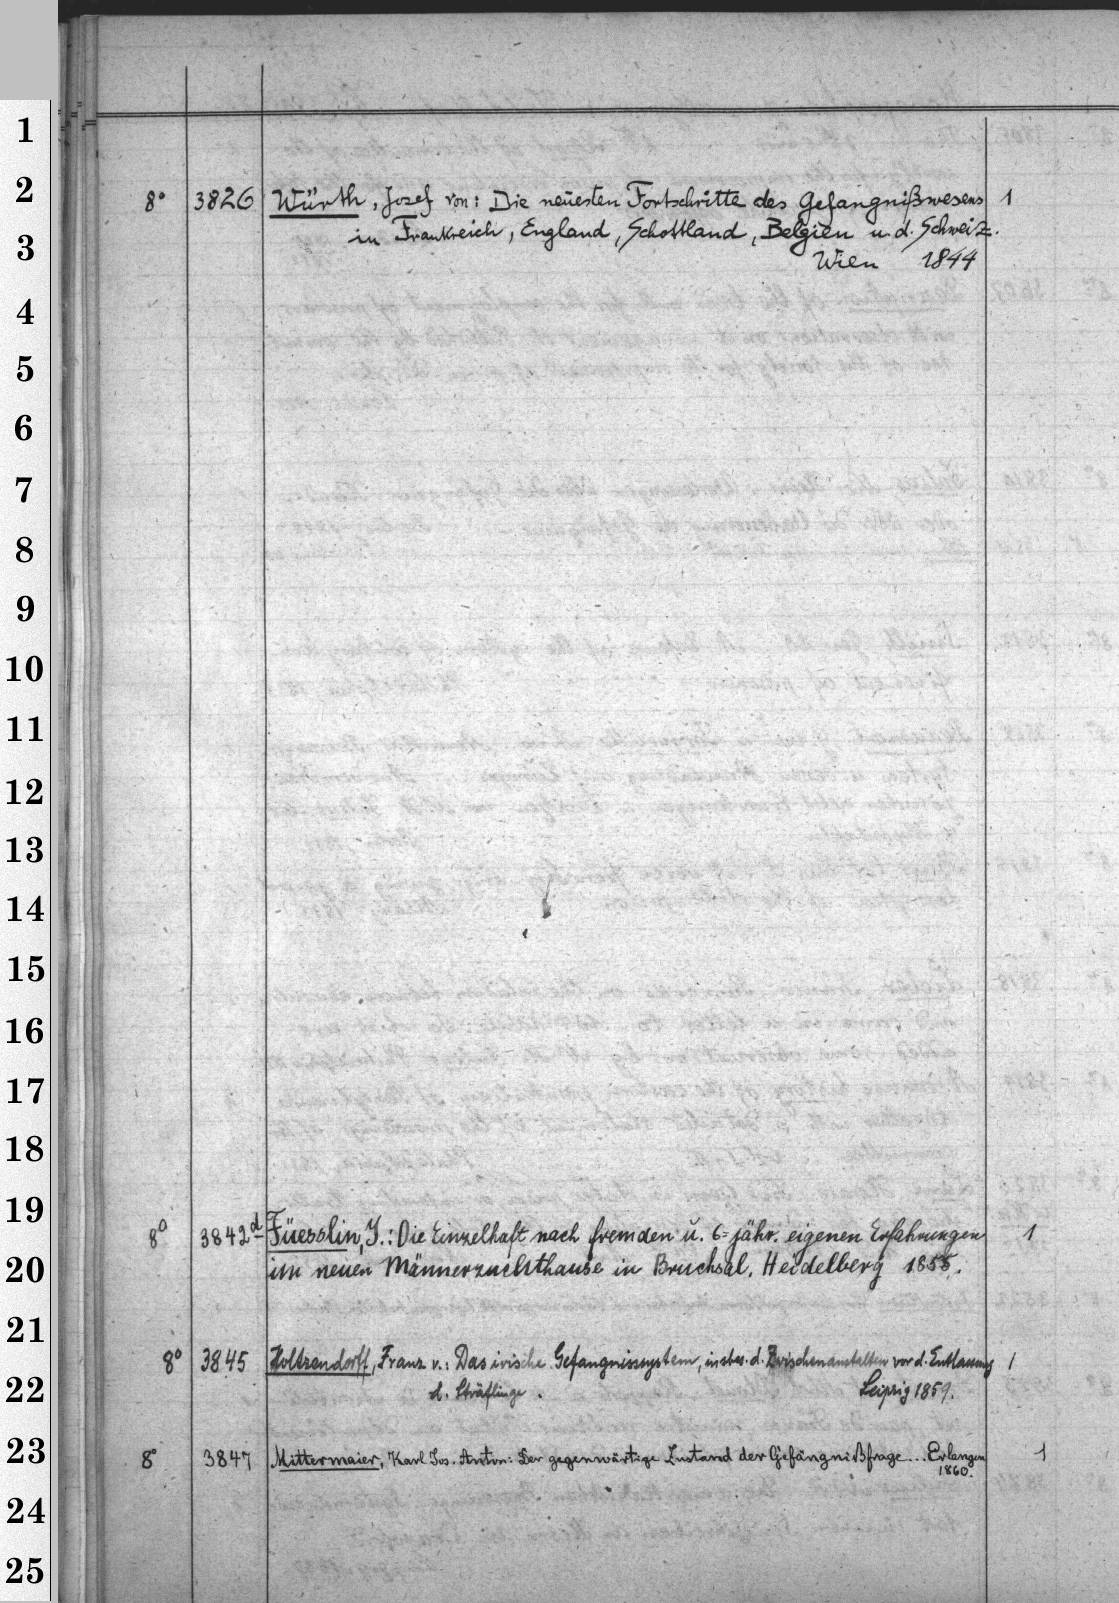 1
2
3
4
5
6
7
8
9
10
11
12
13
14
15
16
17
18
19
20
21
22
23
24
25
8° 3826 Würth, Josef von: Die neuesten Fortschritte des Gefängnißwesens 1
in Frankreich, England, Schottland, Belgien u. d. Schweiz.
Wien 1844
8° 3842d Füesslin, J.: Die Einzelhaft nach fremden u. 6=jähr. eigenen Erfahrungen 1
im neuen Männerzuchthause in Bruchsal. Heidelberg 1855.
8° 3845 Holtzendorff, Franz v.: Das irische Gefängnissystem, insbes. d. Zwischenanstalten vor d. Entlassung 1
d. Sträflinge. Leipzig 1859.
8° 3847 Mittermaier, Karl Jos. Anton: Der gegenwärtige Zustand der Gefängnißfrage... Erlangen 1
1860.